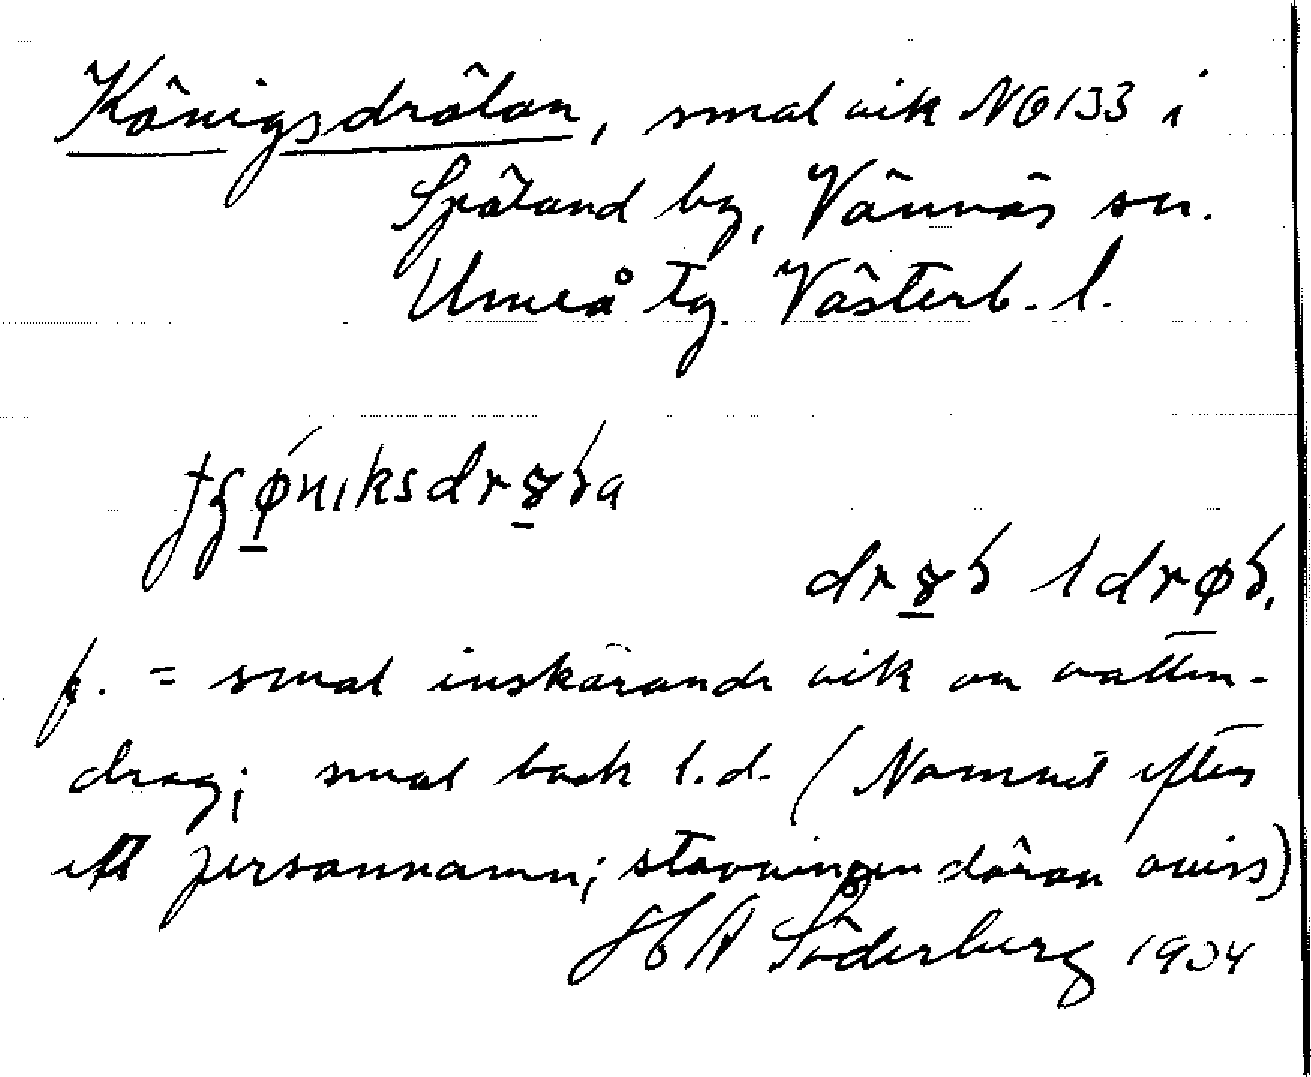 Königsdrölan, smal vik NO 133 i
Spöland by, Vännäs sn.
Umeå tg. Västerb. l.
f. = smal inskärande vik av vatten-
drag; smal bäck l.d. (Namnet efter
ett personnamn; stavningen däran oviss)
H A Söderberg 1934